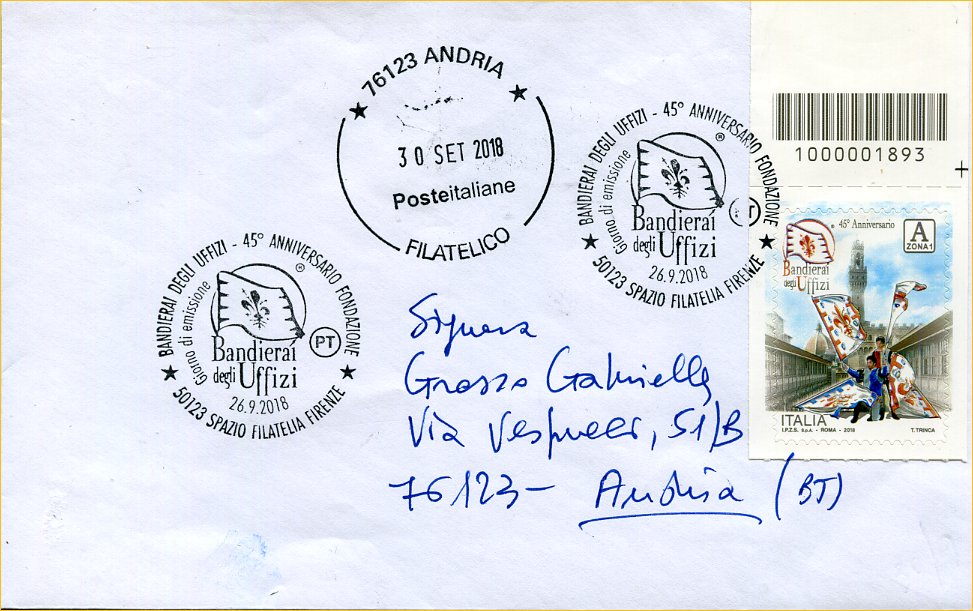 76123 ANDRIA
30 SET 2018
Posteitaliane
FILATELICO
BANDIERAI DEGLI UFFIZI - 45° ANNIVERSARIO FONDAZIONE
Giorno di emissione
®
Bandierai
degli Uffizi
26.9.2018
50123 SPAZIO FILATELIA FIRENZE
BANDIERAI DEGLI UFFIZI - 45° ANNIVERSARIO FONDAZIONE
Giorno di emissione
®
PT
Bandierai
degli Uffizi
26.9.2018
50123 SPAZIO FILATELIA FIRENZE
1000001893
45° Anniversario
A
ZONA 1
®
Bandierai
degli Uffizi
ITALIA
I.P.Z.S. S.p.A. - ROMA - 2018
T. TRINCA
Signora
Grosso Gabriella
Via Vespucci, 51/B
76123 - Andria (BT)